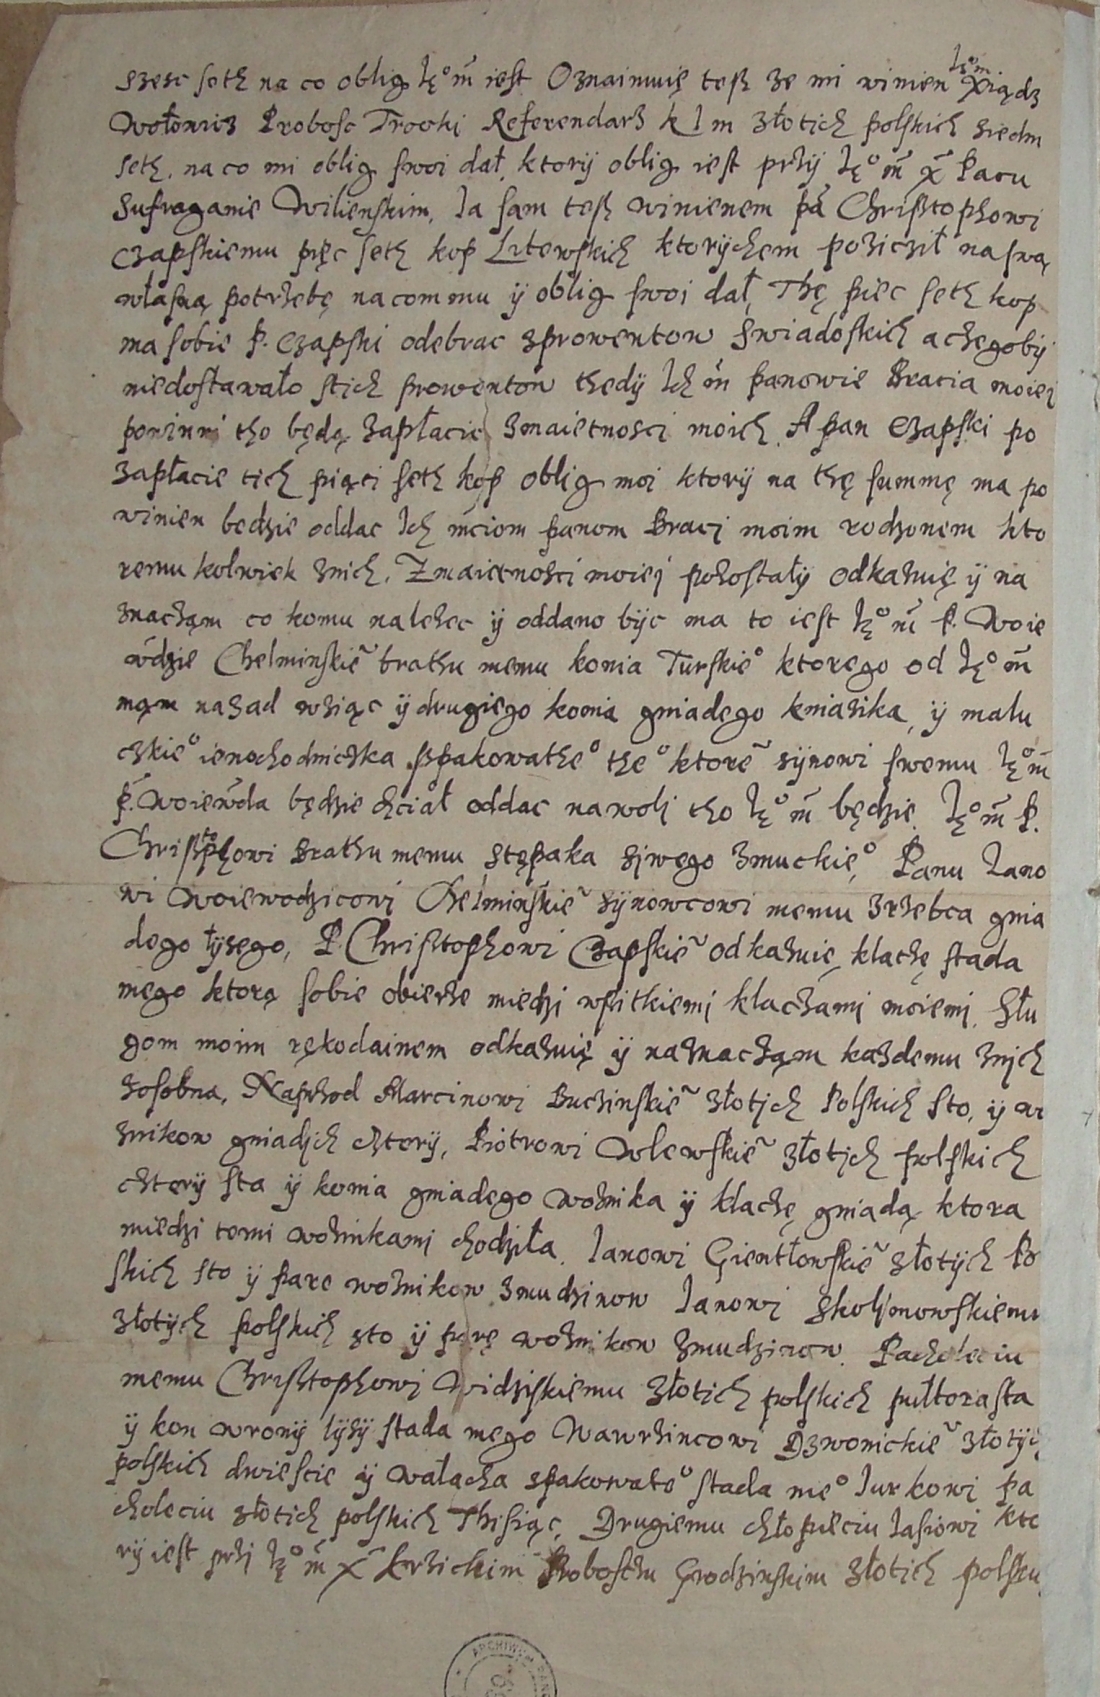 Jęº m̃
szesc seth na co oblig Jęº m̃ iest Oznaimuię tesz ze mi winien Xiądz
Wołowicz Probosc Trocki Referendarz k J m złotich polskich siedm
seth. na co mi oblig swoi dał, ktorÿ oblig iest przÿ Jęº m̃ x̃ Pacu
Sufraganie Wilienskim, Ja sam tesz winienem pã Chrisztophowi
Czapskiemu pięc seth kop Litewskich ktorychem pożicził na swą
własną potrzebę na co mmu ÿ oblig swoi dał, Thę piec seth kop
ma sobie P. Czapski odebrac z prowentow Swiadoskich a czegobÿ
niedostawało s tich prowentow thedÿ Ich m̃ panowie Bracia moiei
powinni tho będą zapłacic z maietnosci moich. A pan Czapski po
zapłacie tich piąci seth kop oblig moi ktorÿ na thę summę ma po
winien bedzie oddac Ich m̃ciom panom Braci moim rodzonem kto
remukolwiek z nich. Z maietnosci moiej pozostałÿ odkazuię ÿ na
znaczam co komu nalezec ÿ oddano bÿc ma to iest Jęº m̃ P. Woie
wdzie Chelminskiẽ brathu memu konia Turskieº ktorego od Jęº m̃
mąm nazad wziąc ÿ drugiego konia gniadego kniazika, ÿ malu
czkieº ienochodniczka szpakowatheº theº ktorẽ sÿnowi swemu Jęº m̃
P. Woiewda będzie chciał oddac na woli tho Jęº m̃ będzie. Jęº m̃ P.
Chrisztophowi Brathu memu stępaka siwego zmuckieº, Panu Jano
wi Woiewodzicowi Chelminskiẽ sÿnowcowi memu zrzebca gnia
dego łysego, P. Chrisztophowi Czapskiẽ odkazuię klaczę stada
mego ktorą sobie obierze miedzi wszitkiemi klaczami moiemi. Słu
gom moim rękodainem odkazuię ÿ naznacząm kazdemu z nich
zosobna, Naprzod Marcinowi Buczinskiẽ złotich Polskich sto, ÿ wo
znikow gniadich cztorÿ, Piotrowi Wlewskiẽ złotich polskich
czterÿ sta ÿ konia gniadego woznika ÿ klaczę gniadą ktora
miedzi temi woznikami chodziła. Janowi Gientłowskiẽ złotÿch Po
skich sto ÿ parę woznikow zmudzinow Janowi Skolimowskiemu
złotÿch polskich sto ÿ parę woznikow zmudzinow. Pacholeciu
memu Chrisztophowi Widzskiemu złotich polskich pułtorasta
ÿ kon wronÿ łysÿ stada mego Wawrzincowi Dzwonickiẽ złotÿch
polskich dwiescie ÿ wałacha spakowateº stada meº Jurkowi pa
choleciu złotich polskich Thisiąc, Drugiemu chłopieciu Jasiowi kto
rÿ iest przi Jęº m̃ x̃ Krzickim Proboszczu Grodzinskim złotich polski
ARCHIWUM